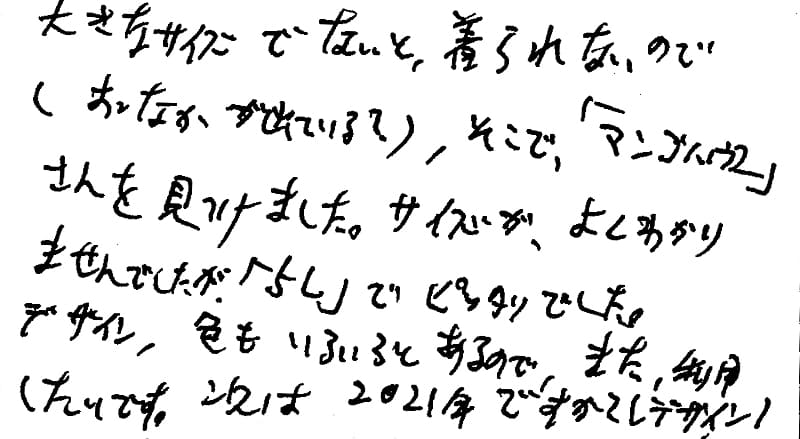 大きなサイズでないと、着られないので
(おなかが出ている?)、そこで、「マンゴハウス」
さんを見つけました。サイズが、よくわかり
ませんでしたが「5L」でピッタリでした。
デザイン、色もいろいろとあるので、また、利用
したいです。次は2021年ですかて(デザイン)